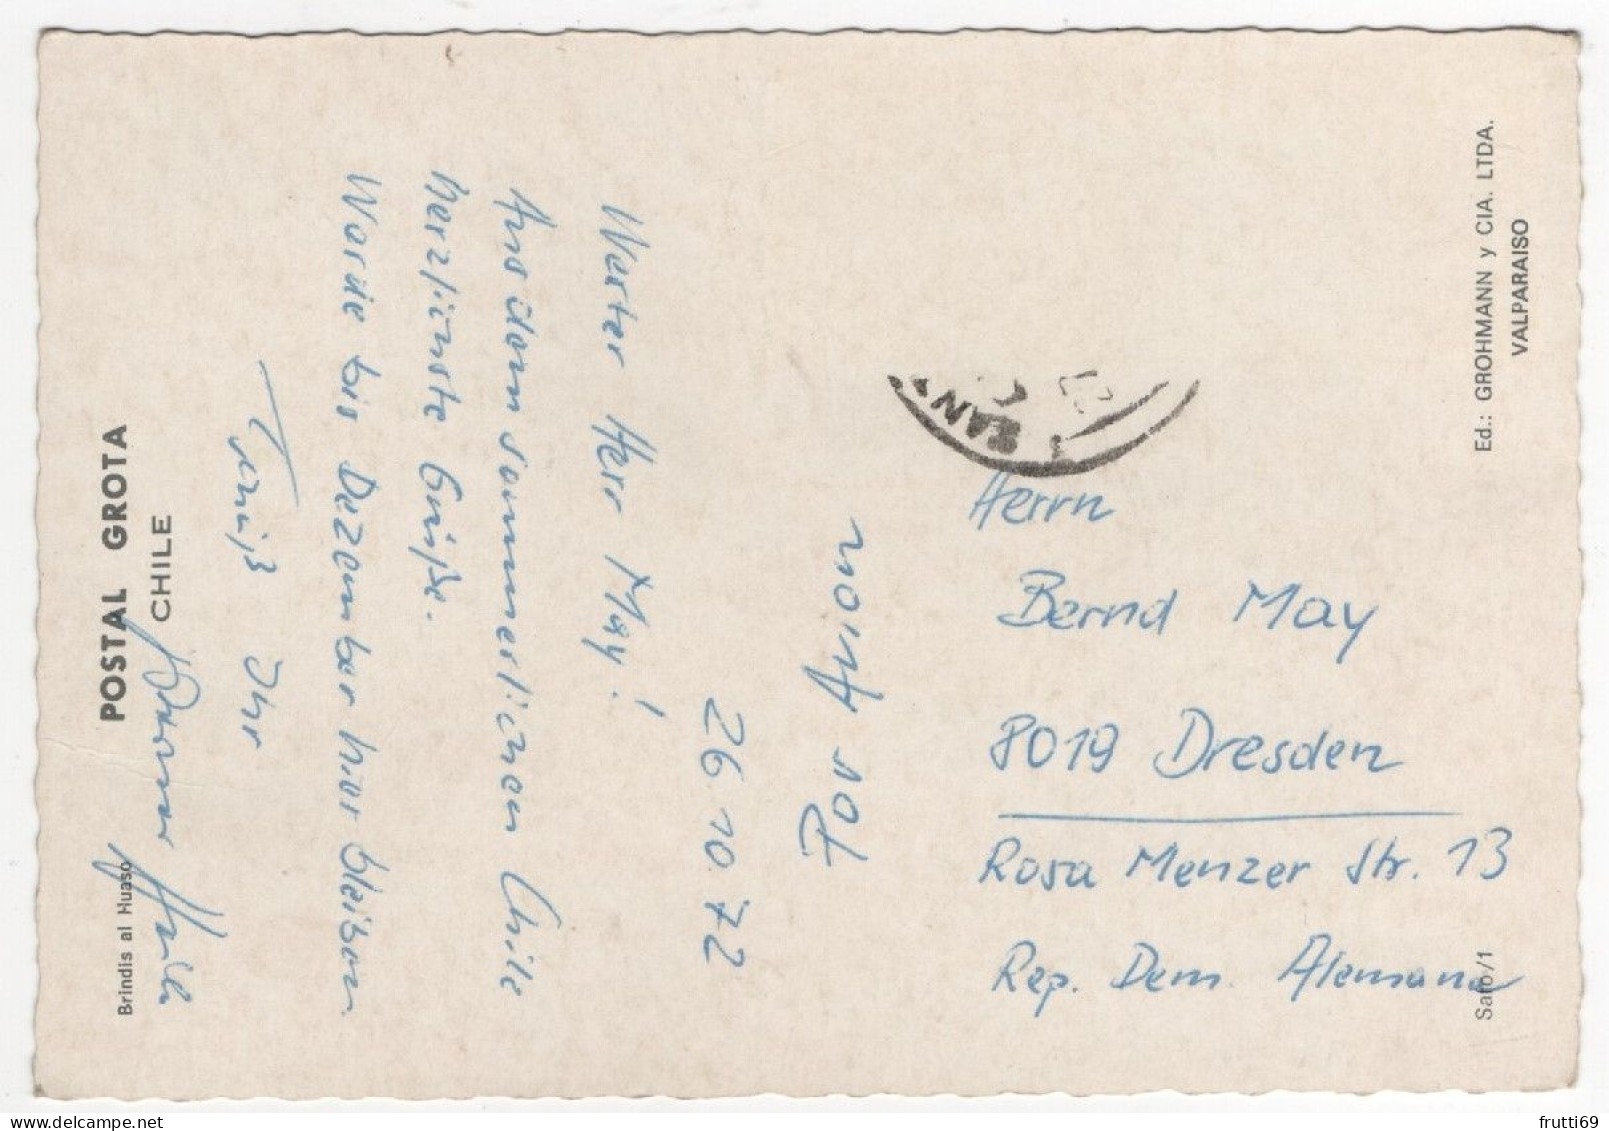 POSTAL GROTA
CHILE
Brindis al Huaso
26 10. 72
Werter Herr May!
Aus dem sommerlichen Chile
herzlichste Grüße.
Werde bis Dezember hier bleiben
Ihr
Por Avion
Herrn
Bernd May
8019 Dresden
Rosa Menzer Str. 13
Rep. Dem. Alemana
Ed.: GROHMANN y CIA. LTDA.
VALPARAISO
frutti69